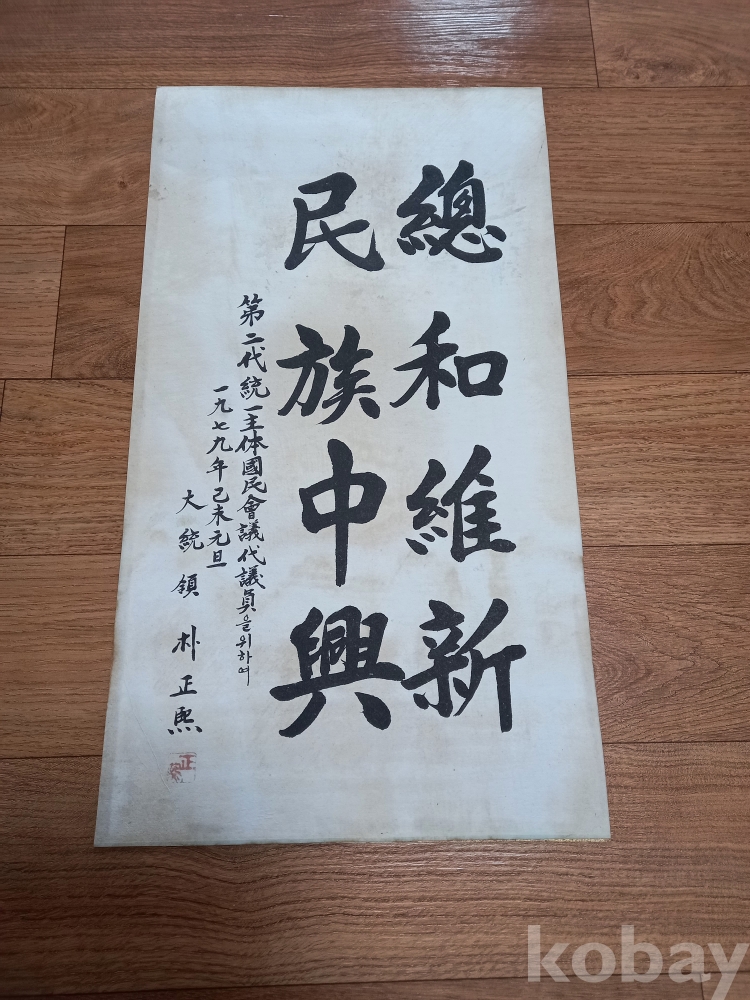 總和維新
民族中興
第二代統一主体國民會議代議員을위하여
一九七九年己未元旦
大統領 朴正熙
正
kobay